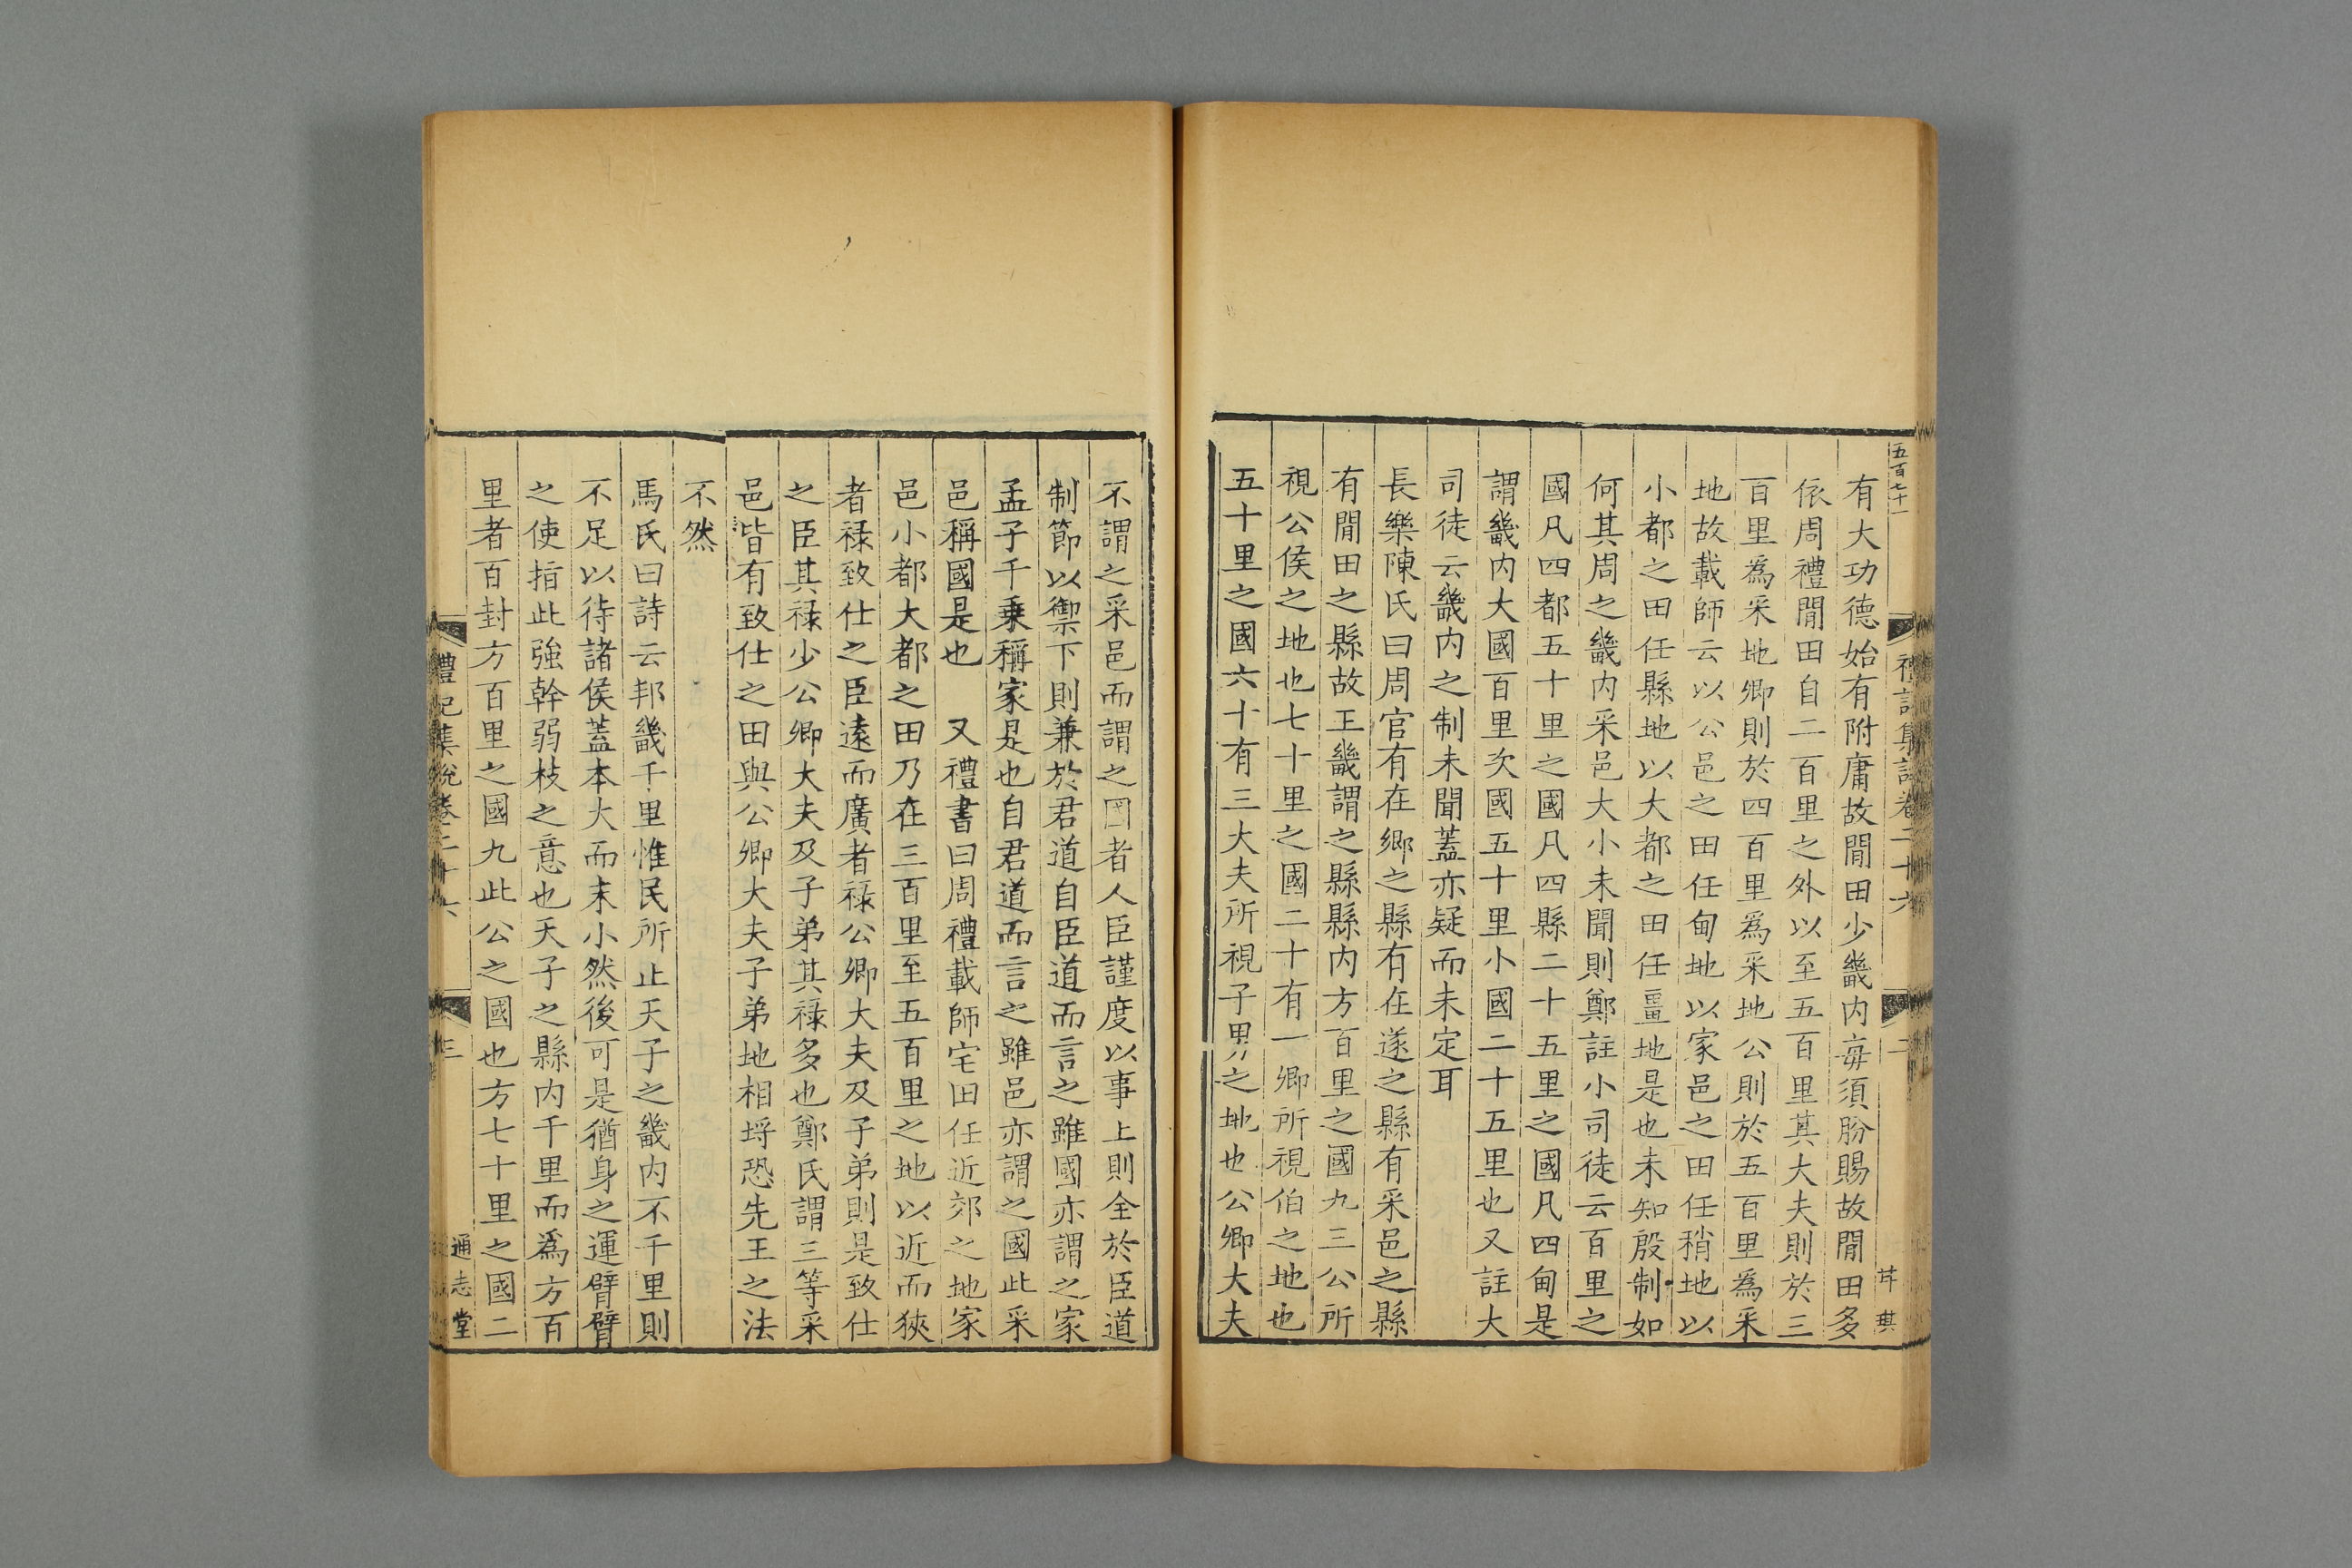 五百七十一
禮記集說卷二十六
二
有大功德始有附庸故閒田少畿内毎須朌賜故閒田多
依周禮閒田自二百里之外以至五百里其大夫則於三
百里爲采地卿則於四百里爲采地公則於五百里爲采
地故載師云以公邑之田任甸地以家邑之田任稍地以
小都之田任縣地以大都之田任畺地是也未知殷制如
何其周之畿内采邑大小未聞則鄭註小司徒云百里之
國凡四都五十里之國凡四縣二十五里之國凡四甸是
謂畿内大國百里次國五十里小國二十五里也又註大
司徒云畿内之制未聞蓋亦疑而未定耳
長樂陳氏曰周官有在鄉之縣有在遂之縣有采邑之縣
有閒田之縣故王畿謂之縣縣内方百里之國九三公所
視公侯之地也七十里之國二十有一卿所視伯之地也
五十里之國六十有三大夫所視子男之地也公卿大夫
不謂之采邑而謂之国者人臣謹度以事上則全於臣道
制節以禦下則兼於君道自臣道而言之雖國亦謂之家
孟子千乗稱家是也自君道而言之雖邑亦謂之國此采
邑稱國是也　又禮書曰周禮載師宅田任近郊之地家
邑小都大都之田乃在三百里至五百里之地以近而狹
者禄致仕之臣遠而廣者禄公卿大夫及子弟則是致仕
之臣其禄少公卿大夫及子弟其禄多也鄭氏謂三等采
邑皆有致仕之田與公卿大夫子弟地相埒恐先王之法
不然
馬氏曰詩云邦畿千里惟民所止天子之畿内不千里則
不足以待諸侯蓋本大而末小然後可是猶身之運臂臂
之使指此強幹弱枝之意也天子之縣内千里而爲方百
里者百封方百里之國九此公之國也方七十里之國二
禮記集說卷二十六
三
通志堂